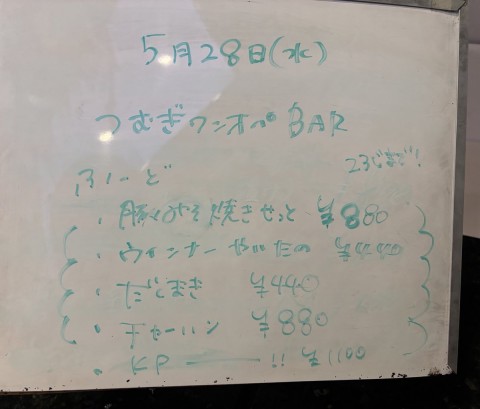 5月28日(水)
つむぎワンオペBAR
23じまで!
ふーど
・豚みそ焼きせっと ¥880
・ウインナーやいたの ¥440
・だしまき ¥440
・チャーハン ¥880
・KP ー !! ¥1100